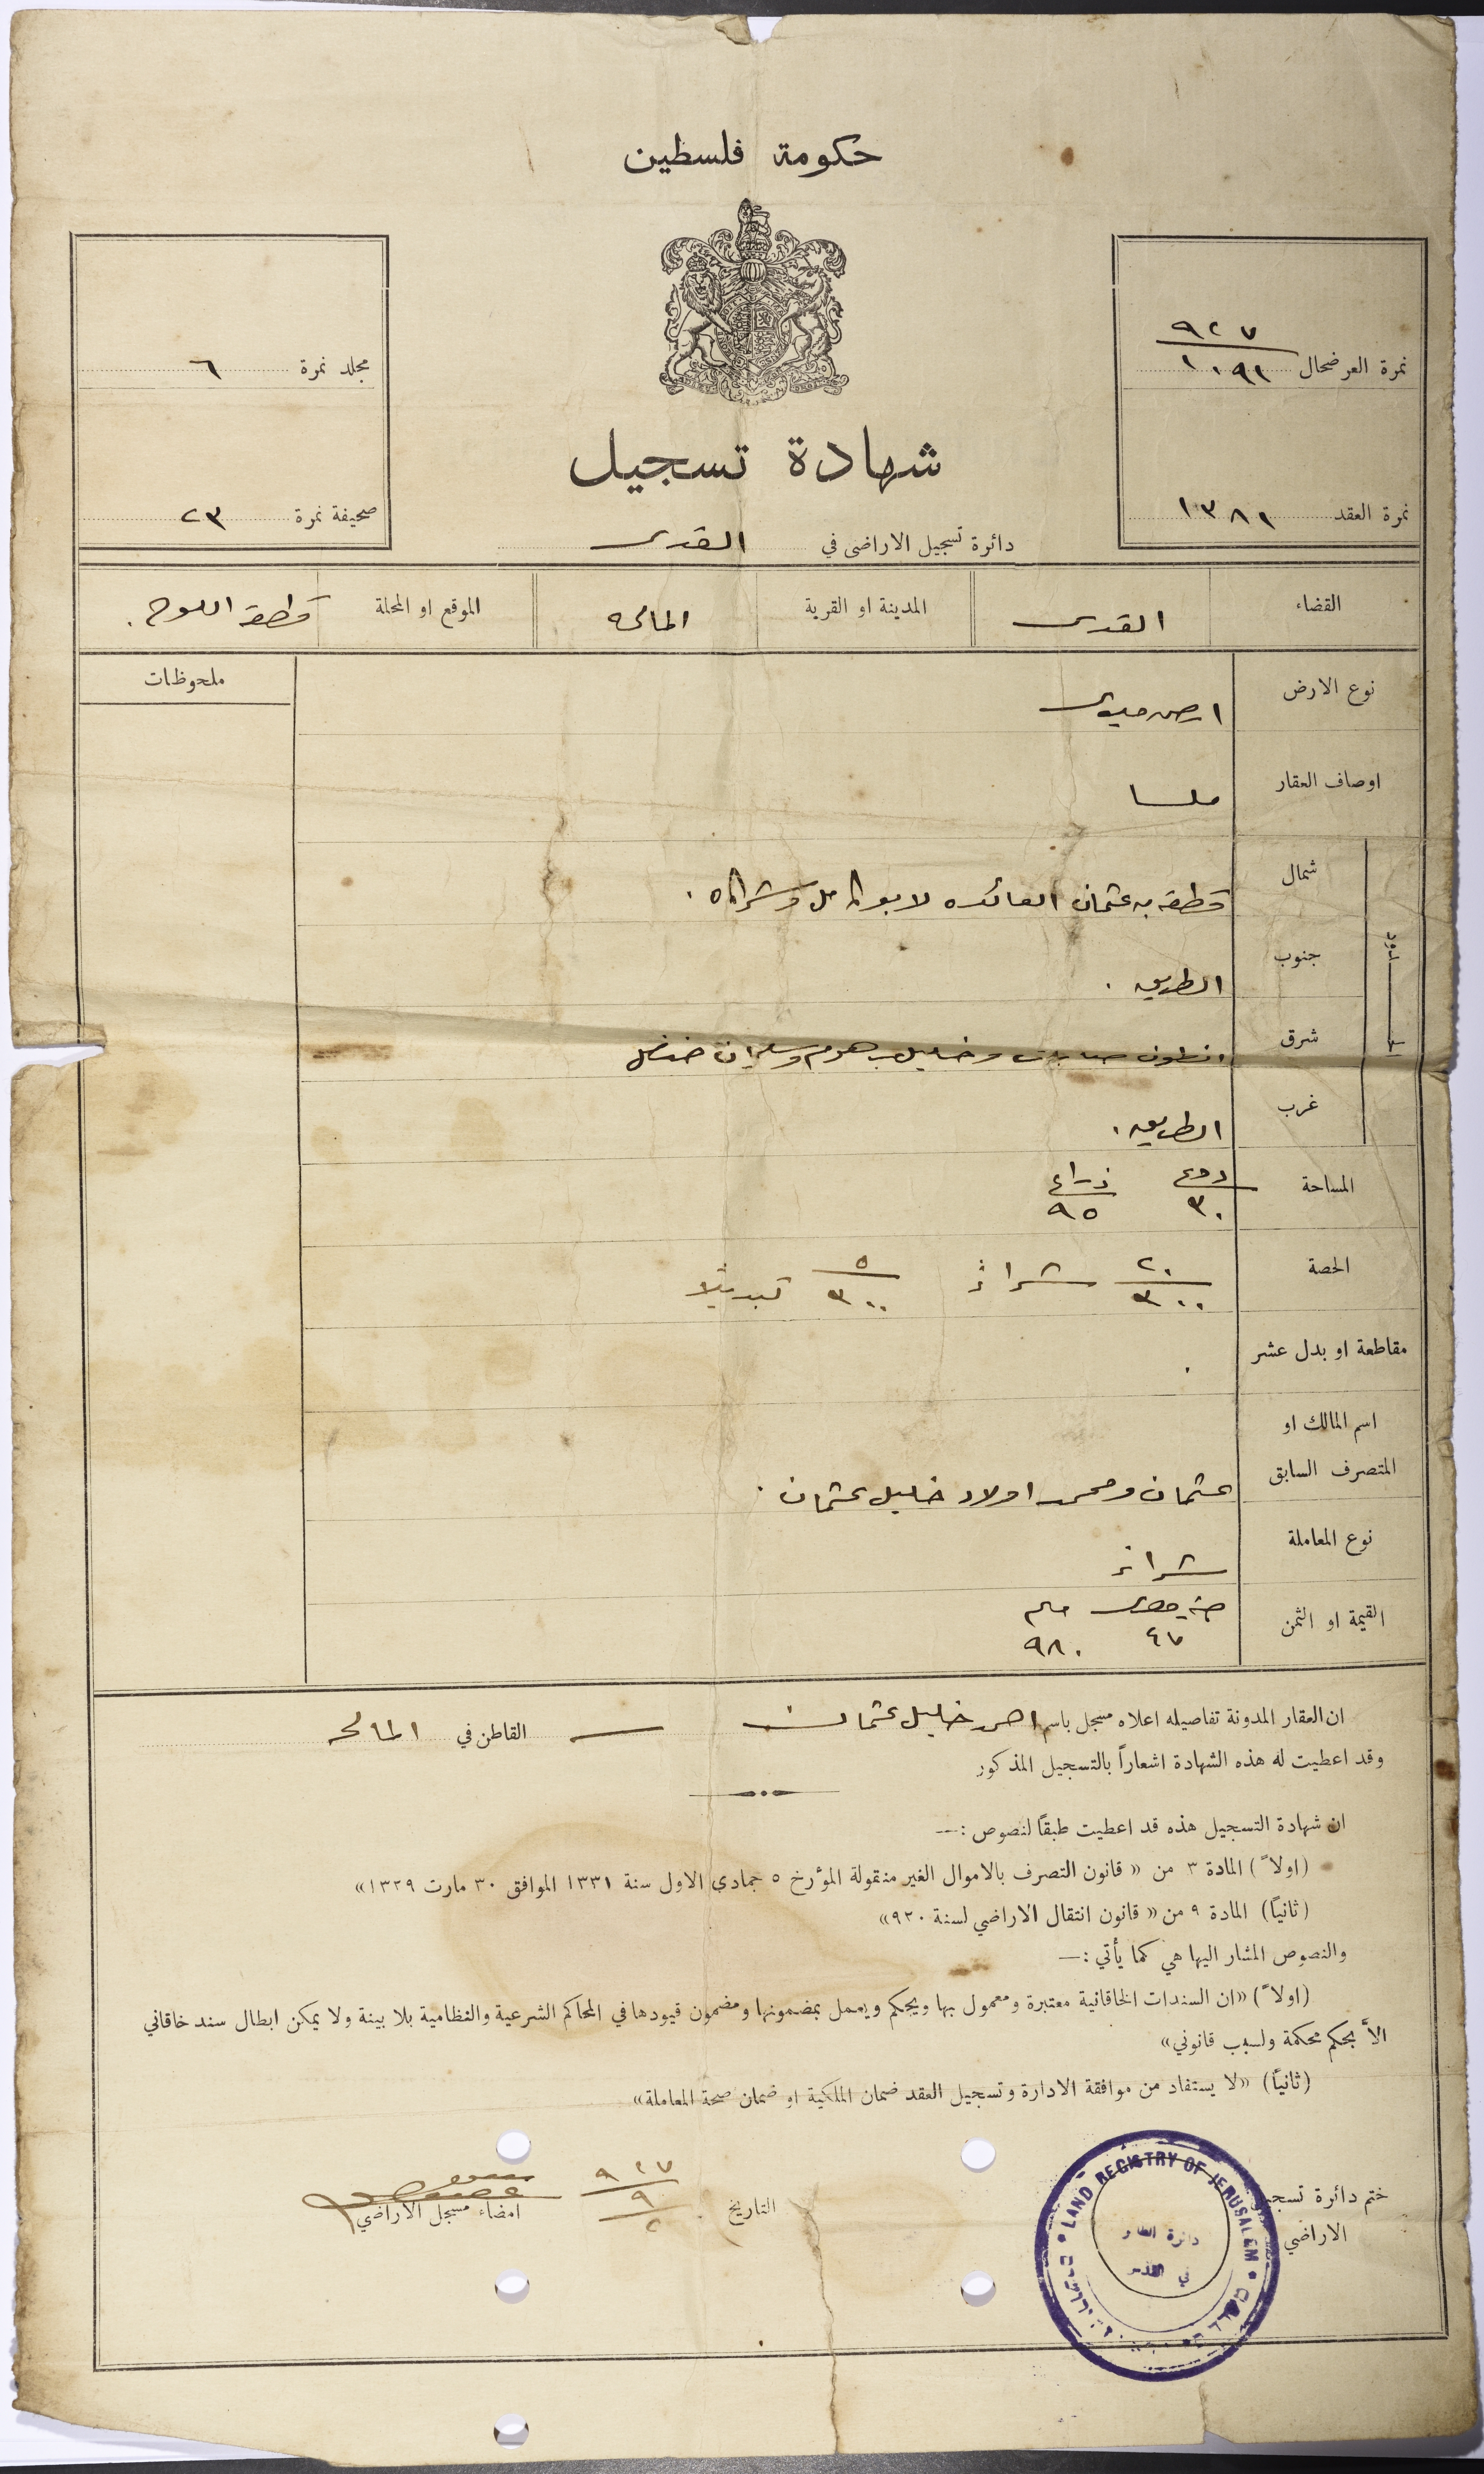 حكومة فلسطين
نمرة العرضحال ٩٢٧ / ١٠٩١
مجلد نمرة ٦
شهادة تسجيل
نمرة العقد ١٣٨١
صحيفة نمرة ٢٣
دائرة تسجيل الاراضي في القدس
القضاء القدس المدينة او القرية المالحه الموقع او المحلة قطعة اللوح
ملحوظات
نوع الارض ارض ميري
اوصاف العقار ملسا
الحدود
شمال قطعة بد عثمان العائده لابو كامل وشركاه
جنوب الطريق
شرق وخليل برهوم وسليمان
غرب الطريق
المساحة دونم ٣٠ ذراع ٩٥
الحصة ٢٠/٣٠٠ شراءً ٥/٣٠٠ تبديلاً
مقاطعة او بدل عشر
اسم المالك او
المتصرف السابق عثمان ومحمد اولاد خليل عثمان
نوع المعاملة شراء
القيمة او الثمن جنيه مصري ٤٧ مليم ٩٨٠
ان العقار المدونة تفاصيله اعلاه مسجل باسم احمد خليل عثمان القاطن في المالحه
وقد اعطيت له هذه الشهادة اشعاراً بالتسجيل المذكور
ان شهادة التسجيل هذه قد اعطيت طبقاً لنصوص :—
(اولاً) المادة ٣ من «قانون التصرف بالاموال الغير منقولة المؤرخ ٥ جمادي الاول سنة ١٣٣١ الموافق ٣٠ مارت ١٣٢٩»
(ثانياً) المادة ٩ من «قانون انتقال الاراضي لسنة ٩٢٠»
والنصوص المشار اليها هي كما يأتي :—
(اولاً) «ان السندات الخاقانية معتبرة ومعمول بها ويحكم ويعمل بمضمونها ومضمون قيودها في المحاكم الشرعية والنظامية بلا بينة ولا يمكن ابطال سند خاقاني
الاَّ بحكم محكمة ولسبب قانوني»
(ثانياً) «لا يستفاد من موافقة الادارة وتسجيل العقد ضمان الملكية او ضمان صحة المعاملة»
ختم دائرة تسجيل
الاراضي
LAND REGISTRY OF JERUSALEM
دائرة
في القدس
التاريخ ٩٢٧ / ٩ / ٢
امضاء مسجل الاراضي